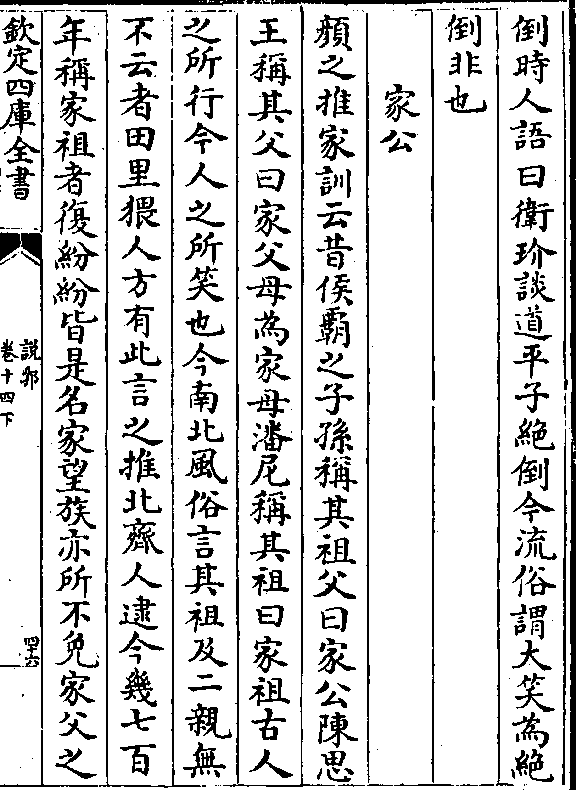 倒時人語曰衛玠談道平子絶倒今流俗謂大笑為絶
倒非也
家公
顔之推家訓云昔侯霸之子孫稱其祖父曰家公陳思
王稱其父曰家父母為家母潘尼稱其祖曰家祖古人
之所行今人之所笑也今南北風俗言其祖及二親無
不云者田里猥人方有此言之推北齊人逮今幾七百
年稱家祖者復紛紛皆是名家望族亦所不免家父之
欽定四庫全書
說郛
卷十四下
四十六